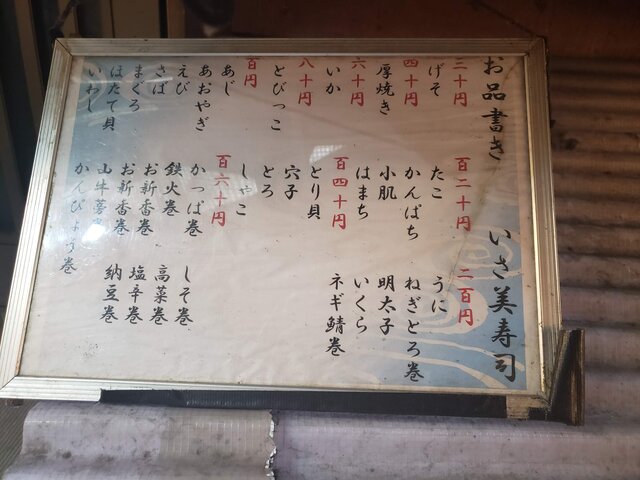 お品書き いさ美寿司
三十円
げそ
四十円
厚焼き
六十円
いか
八十円
とびっこ
百円
あじ
あおやぎ
えび
さば
まぐろ
ほたて貝
いわし
百二十円
たこ
かんぱち
小肌
はまち
百四十円
とり貝
穴子
とろ
しゃこ
百六十円
かっぱ巻
鉄火巻
お新香巻
お新香巻
山牛蒡巻
かんぴょう巻
しそ巻
高菜巻
塩辛巻
納豆巻
二百円
うに
ねぎとろ巻
明太子
いくら
ネギ鯖巻